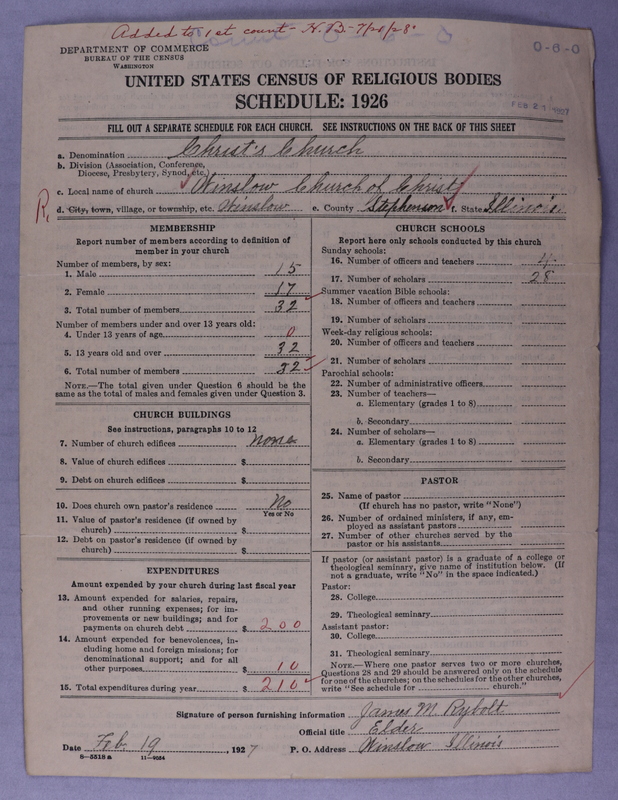 Added to 1st count - H.B - 7/20/28
DEPARTMENT OF COMMERCE
BUREAU OF THE CENSUS
WASHINGTON
0-6-0
UNITED STATES CENSUS OF RELIGIOUS BODIES
SCHEDULE: 1926
FEB 21 1927
FILL OUT A SEPARATE SCHEDULE FOR EACH CHURCH. SEE INSTRUCTIONS ON THE BACK OF THIS SHEET
a. Denomination Christ's Church
b. Division (Association, Conference, Diocese, Presbytery, Synod, etc.)
c. Local name of church Winslow Church of Christ
R. d. City, town, village, or township, etc. Winslow e. County Stephenson f. State Illinois
MEMBERSHIP
Report number of members according to definition of
member in your church
Number of members, by sex:
1. Male 15
2. Female 17
3. Total number of members 32
Number of members under and over 13 years old:
4. Under 13 years of age 0
5. 13 years old and over 32
6. Total number of members 32
NOTE.—The total given under Question 6 should be
same as the total of males and females given under Question 3.
CHURCH BUILDINGS
See instructions, paragraphs 10 to 12
7. Number of church edifices none
8. Value of church edifices $
9. Debt on church edifices $
10. Does church own pastor's residence No
Yes or No
11. Value of pastor's residence (if owned by
church) $
12. Debt on pastor's residence (if owned by
church) $
EXPENDITURES
Amount expended by your church during last fiscal year
13. Amount expended for salaries, repairs,
and other running expenses; for im-
provements or new buildings; and for
payments on church debt $ 200
14. Amount expended for benevolences, in-
cluding home and foreign missions; for
denominational support; and for all
other purposes $ 10
15. Total expenditures during year $ 210
CHURCH SCHOOLS
Report here only schools conducted by this church
Sunday schools:
16. Number of officers and teachers 4
17. Number of scholars 28
Summer vacation Bible schools:
18. Number of officers and teachers
19. Number of scholars
Week-day religious schools:
20. Number of officers and teachers
21. Number of scholars
Parochial schools:
22. Number of administrative officers
23. Number of teachers—
a. Elementary (grades 1 to 8)
b. Secondary
24. Number of scholars—
a. Elementary (grades 1 to 8)
b. Secondary
PASTOR
25. Name of pastor
(If church has no pastor, write "None")
26. Number of ordained ministers, if any, em-
ployed as assistant pastors
27. Number of other churches served by the
pastor or his assistants
If pastor (or assistant pastor) is a graduate of a college or
theological seminary, give name of institution below. (If
not a graduate, write "No" in the space indicated.)
Pastor:
28. College
29. Theological seminary
Assistant pastor:
30. College
31. Theological seminary
NOTE.—Where one pastor serves two or more churches,
Questions 28 and 29 should be answered only on the schedule
for one of the churches; on the schedules for the other churches,
write "See schedule for church."
Signature of person furnishing information James M. Rybolt
Official title Elder
Date Feb 19, 1927 P. O. Address Winslow Illinois
8-5518a 11-9034